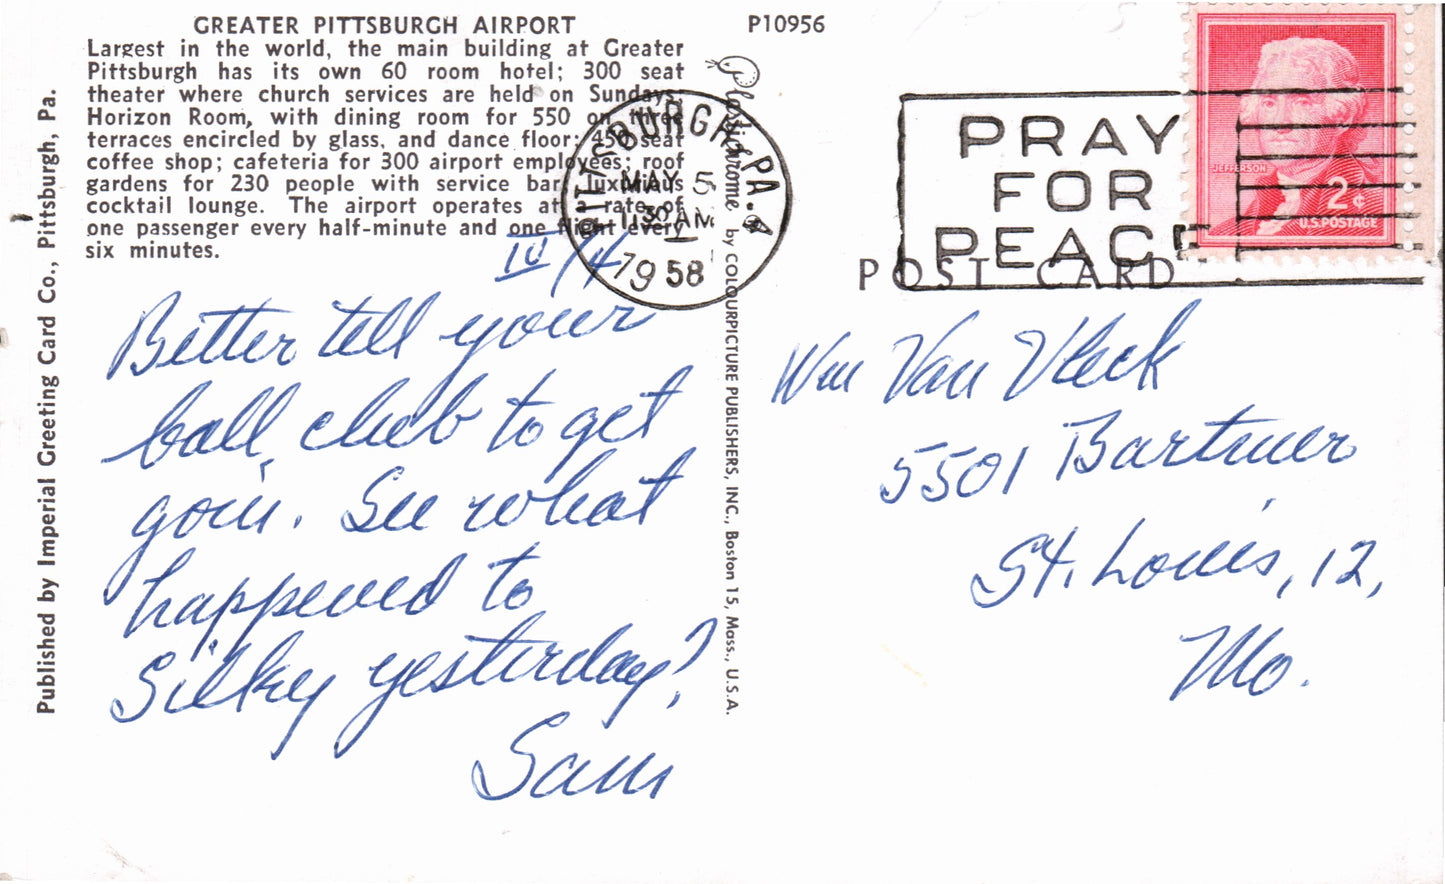 GREATER PITTSBURGH AIRPORT
Largest in the world, the main building at Greater
Pittsburgh has its own 60 room hotel; 300 seat
theater where church services are held on Sundays.
Horizon Room, with dining room for 550 on three
terraces encircled by glass, and dance floor; 450 seat
coffee shop; cafeteria for 300 airport employees; roof
gardens for 230 people with service bar, luxurious
cocktail lounge. The airport operates at rate of
one passenger every half-minute and one flight every
six minutes.
P10956
Published by Imperial Greeting Card Co., Pittsburgh, Pa.
Plastichrome by COLOURPICTURE PUBLISHERS, INC., Boston 15, Mass., U.S.A.
PITTSBURGH, PA.
MAY 5
11 30 AM
1958
PRAY
FOR
PEACE
JEFFERSON
2¢
U.S. POSTAGE
POST CARD
Better tell your
ball club to get
goin. See what
happened to
Silky yesterday?
Sam
Wm Van Vleck
5501 Bartmer
St. Louis, 12,
Mo.